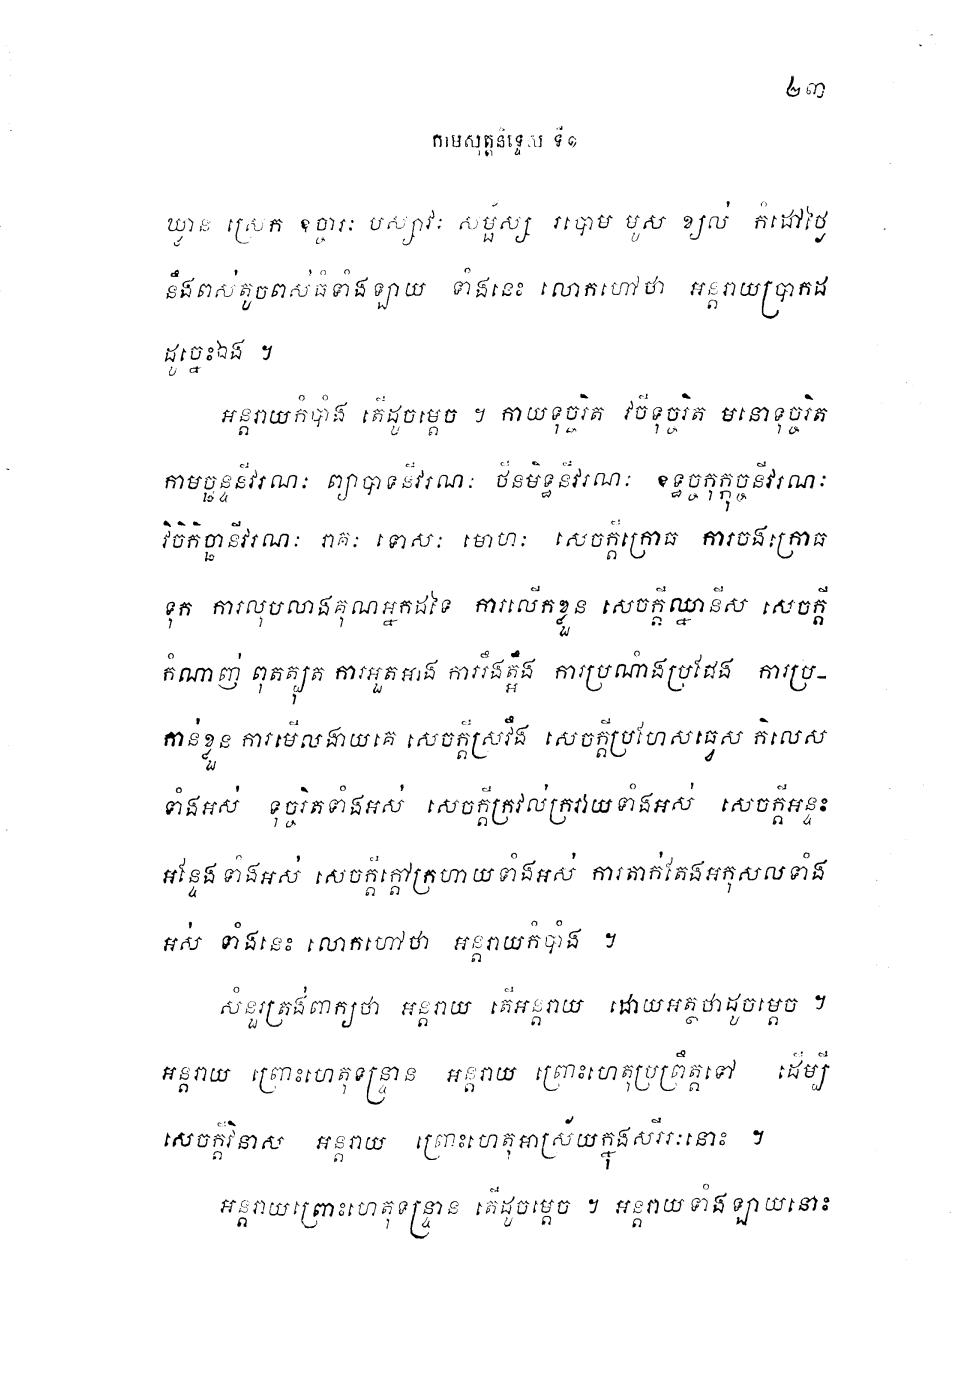 ២៣
កាមសុត្តនិទ្ទេស ទី១
ឃ្លាន ស្រេក ឧច្ចារៈ បស្សាវៈ សម្ផ័ស្ស របោម មូស ខ្យល់ កំដៅថ្ងៃ
នឹងពស់តូចពស់ធំទាំងឡាយ ទាំងនេះ លោកហៅថា អន្តរាយប្រាកដ
ដូច្នេះឯង ។
អន្តរាយកំបាំង តើដូចម្តេច ។ កាយទុច្ចរិត វចីទុច្ចរិត មនោទុច្ចរិត
កាមច្ឆន្ទនីវរណៈ ព្យាបាទនីវរណៈ ថីនមិទ្ធនីវរណៈ ឧទ្ធច្ចកុក្កុច្ចនីវរណៈ
វិចិកិច្ឆានីវរណៈ រាគៈ ទោសៈ មោហៈ សេចក្តីក្រោធ ការចងក្រោធ
ទុក ការលុបលាងគុណអ្នកដទៃ ការលើកខ្លួន សេចក្តីឈ្នានីស សេចក្តី
កំណាញ់ ពុតត្បុត ការអួតអាង ការរឹងត្អឹង ការប្រណាំងប្រជែង ការប្រ-
កាន់ខ្លួន ការមើលងាយគេ សេចក្តីស្រវឹង សេចក្តីប្រហែសធ្វេស កិលេស
ទាំងអស់ ទុច្ចរិតទាំងអស់ សេចក្តីក្រវល់ក្រវាយទាំងអស់ សេចក្តីអន្ទះ
អន្ទែងទាំងអស់ សេចក្តីក្តៅក្រហាយទាំងអស់ ការតាក់តែងអកុសលទាំង
អស់ ទាំងនេះ លោកហៅថា អន្តរាយកំបាំង ។
សំនួរត្រង់ពាក្យថា អន្តរាយ តើអន្តរាយ ដោយអត្ថថាដូចម្តេច ។
អន្តរាយ ព្រោះហេតុទន្ទ្រាន អន្តរាយ ព្រោះហេតុប្រព្រឹត្តទៅ ដើម្បី
សេចក្តីវិនាស អន្តរាយ ព្រោះហេតុអាស្រ័យក្នុងសរីរៈនោះ ។
អន្តរាយព្រោះហេតុទន្ទ្រាន តើដូចម្តេច ។ អន្តរាយទាំងឡាយនោះ